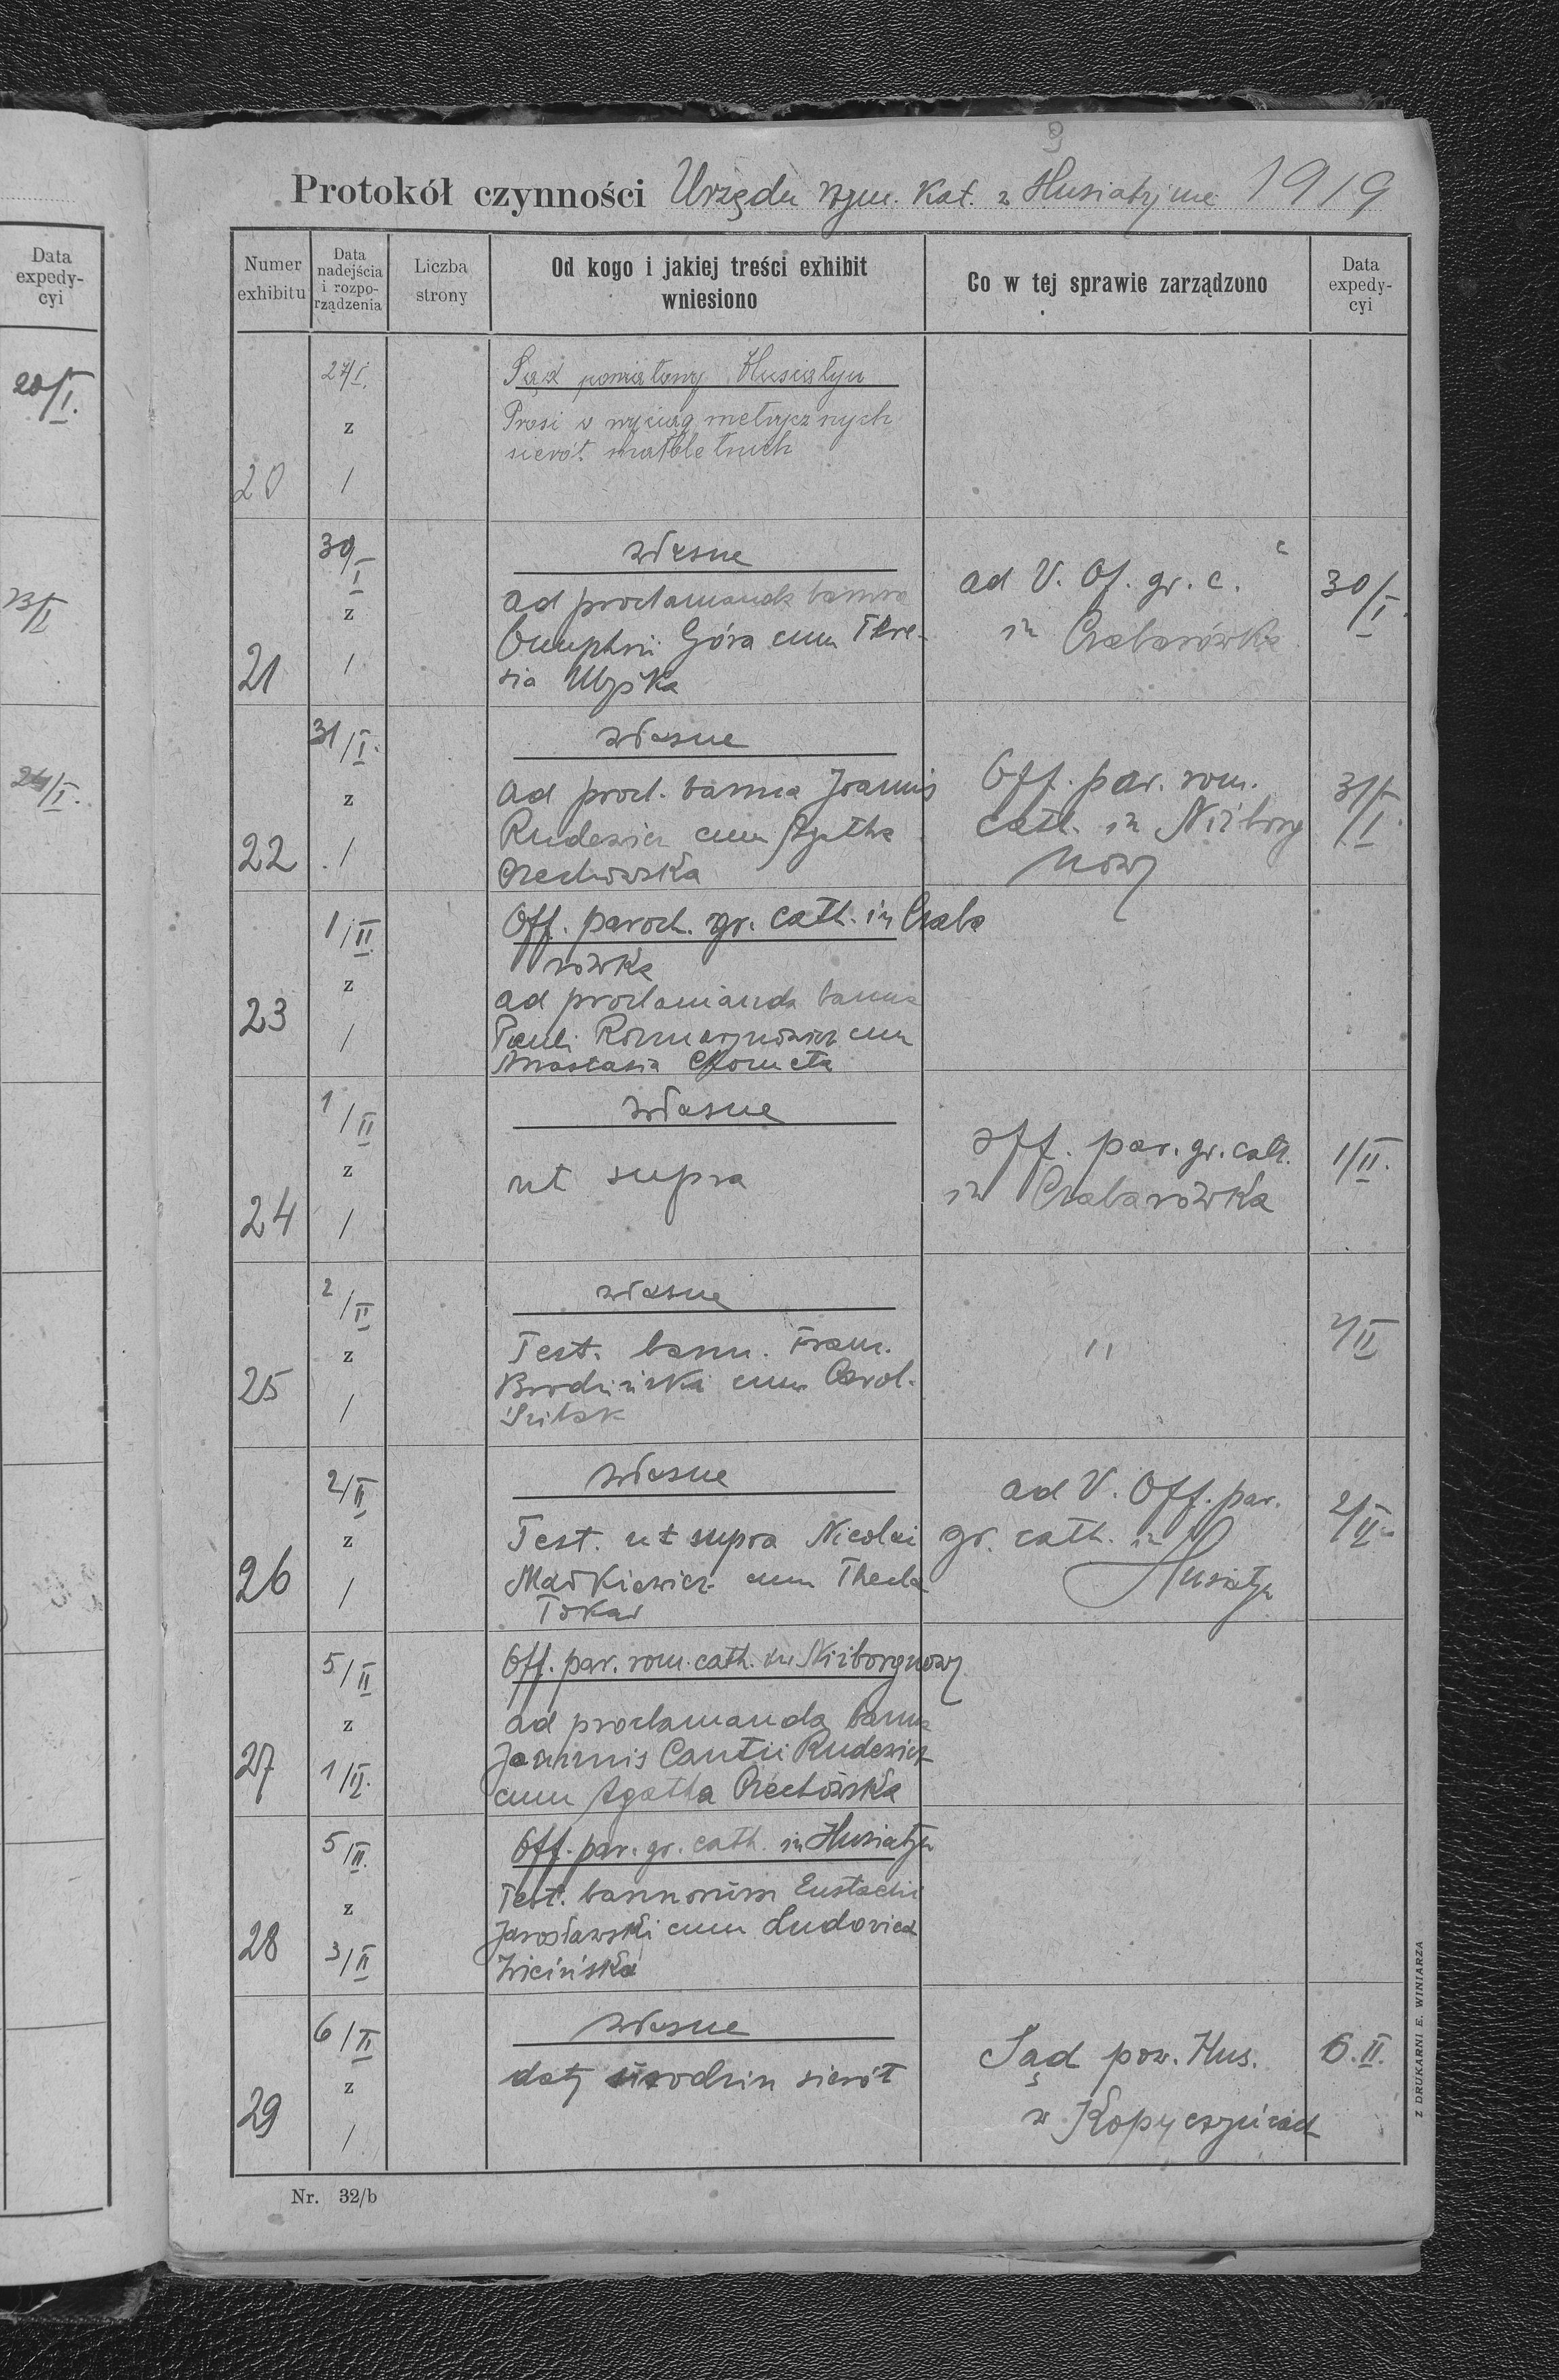 9
Protokół czynności Urzędu rzym. kat. w Husiatynie 1919
Data
expedy-
cyi
20/I.
23/I
24/I.
Numer
exhibitu
Data
nadejścia
i rozpo-
rządzenia
Liczba
strony
Od kogo i jakiej treści exhibit
wniesiono
Co w tej sprawie zarządzono
Data
expedy-
cyi
20
27/I.
z
/
Sąd powiatowy Husiatyn
Prosi o wyciąg metrycznych
sierót małoletnich
21
30/I
z
/
własne
ad proclamanda banna
Onuphrii Góra cum There-
sia
ad V. Of. gr. c.
in Czabarówka
30/I.
22
31/I.
z
/
własne
ad procl. banna Joannis
Rudewicz cum Agatha
Czechowska
Off. par. rom.
cath. in Niżborg
nowy
31/I.
23
1/II
z
/
Off. paroch. gr. cath. in Czaba
rówka
ad proclamanda banna
Pauli Rozmarynowicz cum
Anastasia
24
1/II
z
/
własne
ut supra
off. par. gr. cath.
in Czabarówka
1/II.
25
2/II
z
/
własne
Test. bann. Fran.
Brodziński cum Carol.
"
2/II
26
2/II
z
/
własne
Test. ut supra Nicolai
Markiewicz cum Thecla
Tokar
ad V. Off. par.
gr. cath. in
Husiatyn
2/II
27
5/II
z
1/II.
Off. par. rom. cath. in Niżborg nowy
ad proclamanda banna
Joannis Cantii Rudewicz
cum Agatha Czechowska
28
5/II.
z
3/II
Off. par. gr. cath. in Husiatyn
Test. bannorum Eustachii
Jarosławski cum Ludovica
Zwicińska
29
6/II
z
/
własne
daty urodzin sierót
Sąd pow. Hus.
w Kopyczyńcach
6.II.
Nr. 32/b
Z DRUKARNI E. WINIARZA